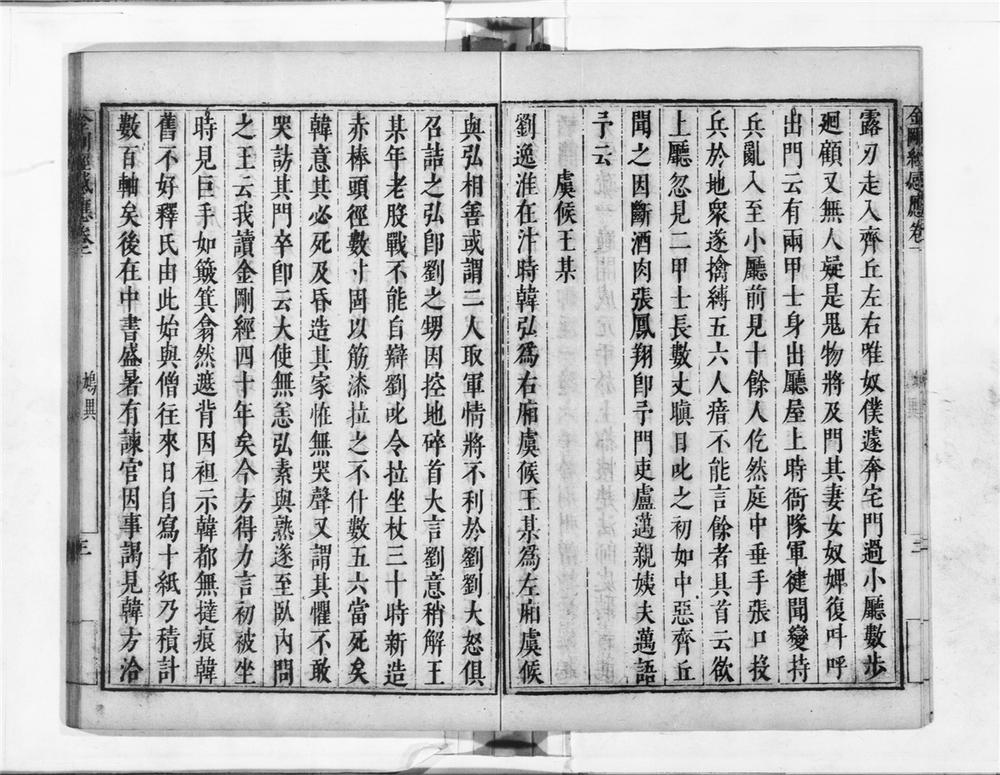 露刃走入齊丘左右唯奴僕遽奔宅門過小廳數步
廻顧又無人疑是鬼物將及門其妻女奴婢復叫呼
出門云有兩甲士身出廳屋上時衙隊軍健聞變持
兵亂入至小廳前見十餘人仡然庭中垂手張口投
兵於地衆遂擒縛五六人瘖不能言餘者具首云欲
上廳忽見二甲士長數丈瞋目叱之初如中惡齊丘
聞之因斷酒肉張鳳翔卽予門吏盧邁親姨夫邁語
予云
虞候王某
劉逸淮在汴時韓弘爲右廂虞候王某爲左廂虞候
與弘相善或謂二人取軍情將不利於劉劉大怒俱
召詰之弘卽劉之甥因控地碎首大言劉意稍解王
某年老股戰不能自辯劉叱令拉坐杖三十時新造
赤棒頭徑數寸固以筋漆拉之不什數五六當死矣
韓意其必死及昏造其家怪無哭聲又謂其懼不敢
哭訪其門卒卽云大使無恙弘素與熟遂至臥內問
之王云我讀金剛經四十年矣今方得力言初被坐
時見巨手如簸箕翕然遮背因袒示韓都無撻痕韓
舊不好釋氏由此始與僧往來日自寫十紙乃積計
數百軸矣後在中書盛暑有諫官因事謁見韓方洽
金剛經感應卷二
鳩異
三